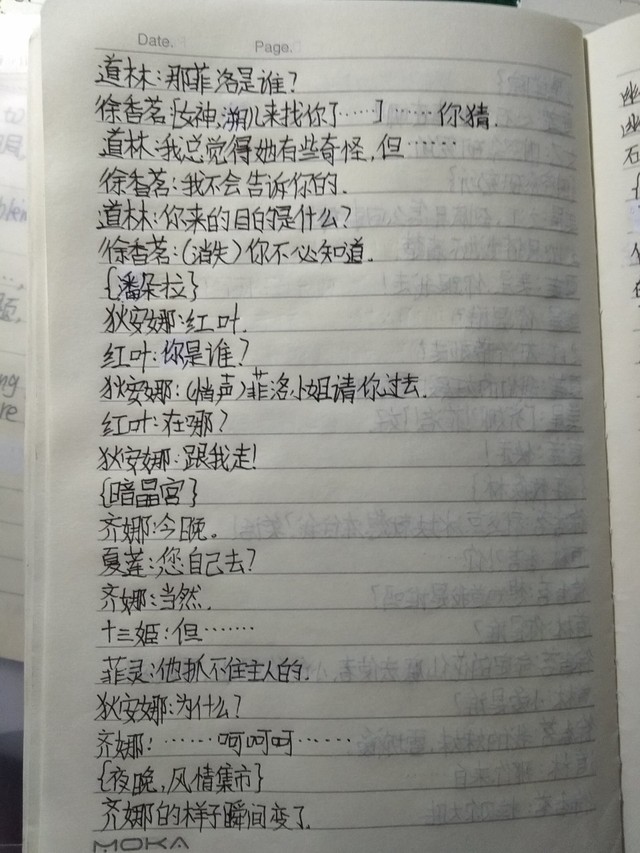 Date.
Page.
道林:那菲洛是谁?
徐香茗:[女神,溯儿来找你了……]……你猜.
道林:我总觉得她有些奇怪,但……
徐香茗:我不会告诉你的.
道林:你来的目的是什么?
徐香茗:(消失)你不必知道.
{潘朵拉}
狄安娜:红叶.
红叶:你是谁?
狄安娜:(悄声)菲洛小姐请你过去.
红叶:在哪?
狄安娜:跟我走!
{暗晶宫}
齐娜:今晚。
夏莲:您自己去?
齐娜:当然.
十三姬:但……
菲灵:他抓不住主人的.
狄安娜:为什么?
齐娜:……呵呵呵……
{夜晚,风情集市}
齐娜的样子瞬间变了.
MOKA